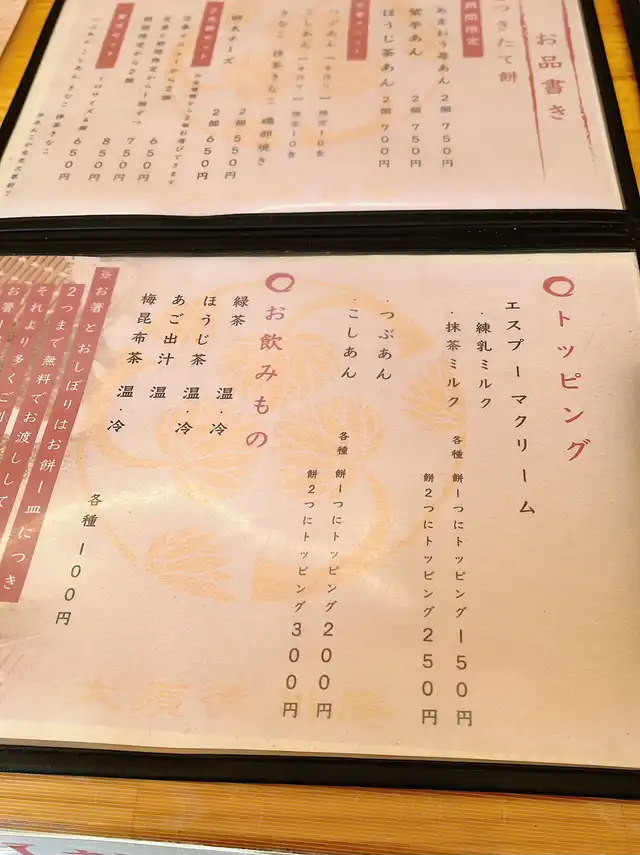 お品書き
つきたて餅
期間限定
あまおう苺あん 2個 750円
紫芋あん 2個 750円
ほうじ茶あん 2個 700円
きなこ 抹茶きなこ 磯部焼き
2個 550円
明太チーズ 2個 650円
650円
750円
850円
650円
トッピング
エスプーマクリーム
・練乳ミルク
・抹茶ミルク
各種 餅1つにトッピング150円
餅2つにトッピング250円
・つぶあん
・こしあん
各種 餅1つにトッピング200円
餅2つにトッピング300円
お飲みもの
緑茶 温・冷
ほうじ茶 温・冷
あご出汁 温
梅昆布茶 温・冷
各種 100円
※お箸とおしぼりはお餅一皿につき
2つまで無料でお渡しして
それより多くご利